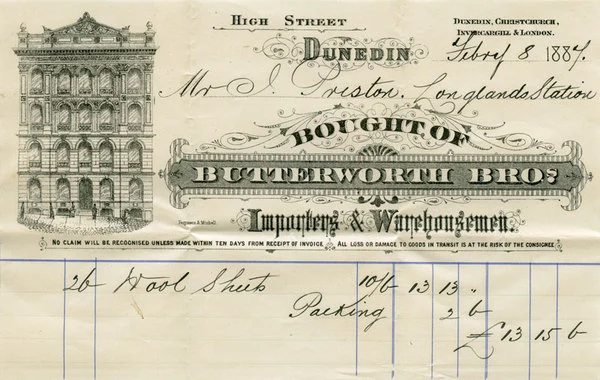 HIGH STREET
DUNEDIN, CHRISTCHURCH,
INVERCARGILL & LONDON.
DUNEDIN Febry 8 1887.
Mr J. Preston. Longlands Station
BOUGHT OF
BUTTERWORTH BROS
Importers & Warehousemen.
Fergusson & Mitchell
NO CLAIM WILL BE RECOGNISED UNLESS MADE WITHIN TEN DAYS FROM RECEIPT OF INVOICE. ALL LOSS OR DAMAGE TO GOODS IN TRANSIT IS AT THE RISK OF THE CONSIGNEE
26 Wool Sheets 10/6 13 13 "
Packing 2 6
£13 15 6